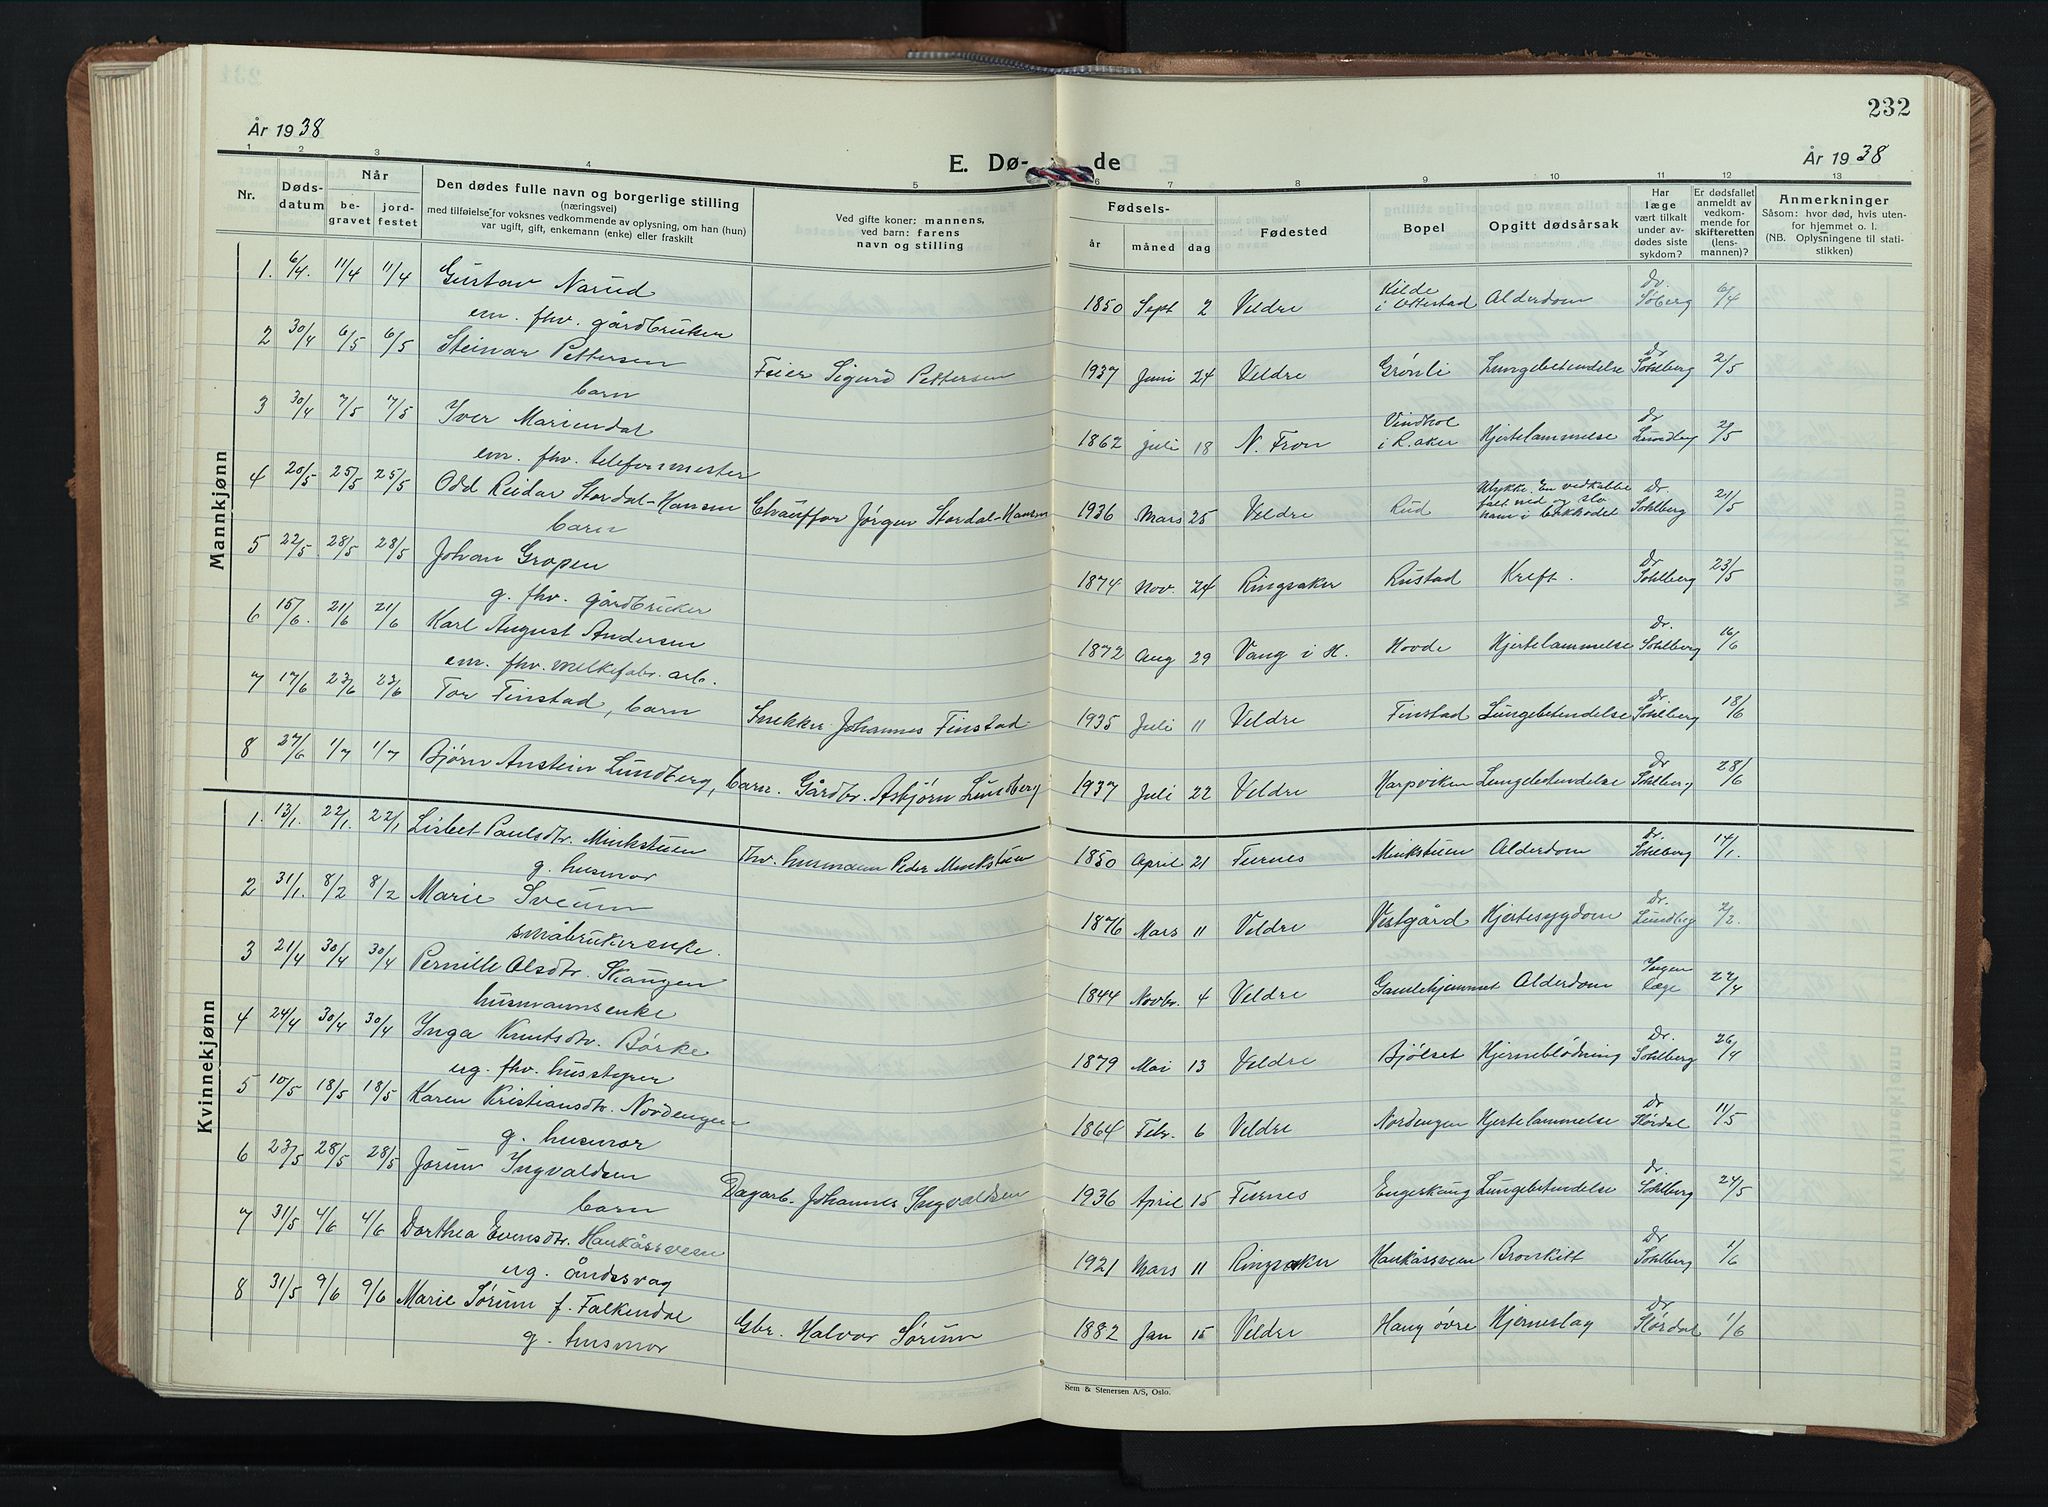 232
År 1938
E. Dø- de
År 1938
1 2 3 4 5 6 7 8 9 10 11 12 13
Nr.
Døds-
datum
Når
be-
gravet
jord-
festet
Den dødes fulle navn og borgerlige stilling
(næringsvei)
med tilføielse for voksnes vedkommende av oplysning, om han (hun)
var ugift, gift, enkemann (enke) eller fraskilt
Ved gifte koner: mannens,
ved barn: farens
navn og stilling
Fødsels-
år måned dag
Fødested
Bopel
Opgitt dødsårsak
Har
læge
vært tilkalt
under av-
dødes siste
sykdom?
Er dødsfallet
anmeldt av
vedkom-
mende for
skifteretten
(lens-
mannen)?
Anmerkninger
Såsom: hvor død, hvis uten-
for hjemmet o. l.
(NB. Oplysningene til stati-
stikken)
Mannkjønn
1. 6/4. 11/4 11/4 Gustav Narud 1850 Sept 2 Veldre Kilde i Ottestad Alderdom Dr. Søberg 6/4
em. fhv. gårdbruker
2 30/4 6/5 6/5 Steinar Pettersen Feier Sigurd Pettersen 1937 Juni 24 Veldre Grønli Lungebetendelse Dr Sohlberg 2/5
barn
3 30/4 7/5 7/5 Iver Mariendal 1862 Juli 18 N. Fron i R.aker Hjertelammelse dr Lundberg 2/5
em. fhv. telefonmester
4 20/5 25/5 25/5 Odd Reidar Stordal-Hansen Chauffør Jørgen Stordal-Hansen 1936 Mars 25 Veldre Rud Ulykke. En vedkabbe falt ned og slo ham i bakhodet Dr. Sohlberg 21/5
barn
5 22/5 28/5 28/5 Johan Gropen 1874 Nov. 24 Ringsaker Rustad Kreft. Dr Sohlberg 23/5
g. fhv. gårdbruker
6 15/6. 21/6 21/6 Karl August Andersen 1872 Aug 29 Vang i H. Hovde Hjertelammelse Dr. Sohlberg 16/6
em. fhv. melkefabr. arb.
7 17/6 23/6 23/6 Tor Finstad, barn Snekker Johannes Finstad 1935 Juli 11 Veldre Finstad Lungebetendelse Dr. Sohlberg 18/6
8 27/6 1/7 1/7 Bjørn Anstein Lundberg, barn. Gårdbr. Asbjørn Lundberg 1937 Juli 22 Veldre Harpviken Lungebetendelse Dr Sohlberg 28/6
Kvinnekjønn
1. 13/1. 22/1. 22/1 Lisbet Paulsdtr. Minkstuen fhv. husmann Peder Minkstuen 1850 April 21 Furnes Minkstuen Alderdom Dr. Sohlberg 14/1.
g. husmor
2 31/1. 8/2 8/2 Marie Sveum 1876 Mars 11 Veldre Vestgård Hjertesygdom Dr. Lundberg 2/2.
småbrukerenke.
3 21/4 30/4 30/4 Pernille Olsdtr. Skaugen 1844 Novbr. 4 Veldre Gamlehjemmet Alderdom Ingen læge 22/4
husmannsenke
4 24/4 30/4 30/4 Inga Knutsdtr. Børke 1879 Mai 13 Veldre Bjølset Hjerneblødning Dr. Sohlberg 26/4
ug. fhv. husstyrer
5 10/5 18/5 18/5 Karen Kristiansdtr. Nordengen 1864 Febr. 6 Veldre Nordengen Hjertelammelse Dr Størdal 11/5
g. husmor
6 23/5 28/5 28/5 Jorun Ingvaldsen Dagarb. Johannes Ingvaldsen 1936 April 15 Furnes Engeskaug Lungebetendelse Dr. Sohlberg 24/5
barn
7 31/5 4/6 4/6 Dorthea Evensdtr. Haukåssveen 1921 Mars 11 Ringsaker Haukåssveen Bronkitt Dr Sohlberg 1/6
ug. åndssvag
8 31/5 9/6 9/6 Marie Sørum f. Falkendal Gbr. Halvor Sørum 1882 Jan 15 Veldre Haug øvre Hjerneslag Dr Størdal 1/6
g. husmor
Sem & Stenersen A/S, Oslo.